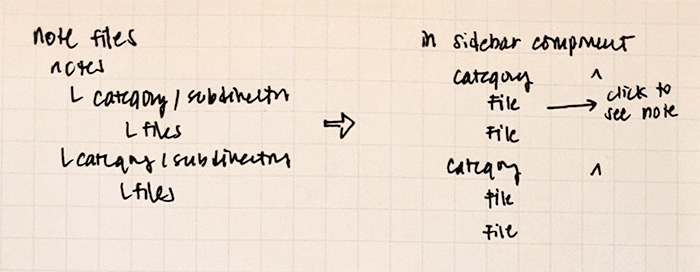 note files
notes
L category / subdirectory
L files
L category / subdirectory
L files
in sidebar component
category ^
File → click to
see note
File
category ^
File
File